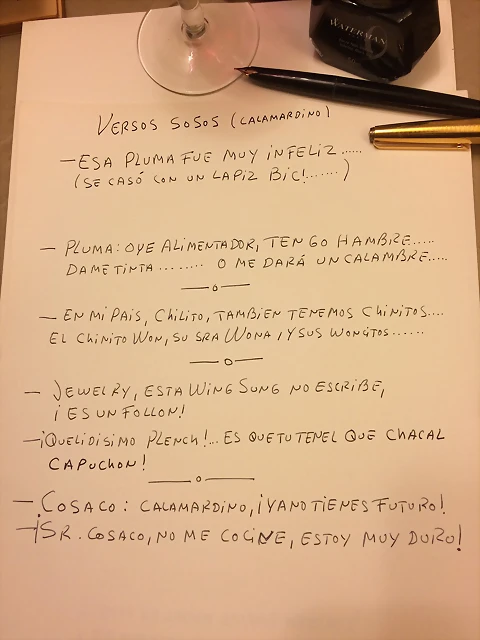 WATERMAN
VERSOS SOSOS (CALAMARDINO)
— ESA PLUMA FUE MUY INFELIZ......
(SE CASÓ CON UN LAPIZ BIC!.......)
— PLUMA: OYE ALIMENTADOR, TENGO HAMBRE.....
DAME TINTA ........ O ME DARÁ UN CALAMBRE.....
— o —
— EN MI PAIS, CHILITO, TAMBIEN TENEMOS CHINITOS....
EL CHINITO WON, SU SRA WONA, Y SUS WONCITOS......
— o —
— JEWELRY, ESTA WING SUNG NO ESCRIBE,
¡ ES UN FOLLON!
—¡QUELIDISIMO PLENCH!... ES QUE TU TENEL QUE CHACAL
CAPUCHON!
— o —
— COSACO: CALAMARDINO, ¡YA NO TIENES FUTURO!
—¡SR. COSACO, NO ME COCINE, ESTOY MUY DURO!